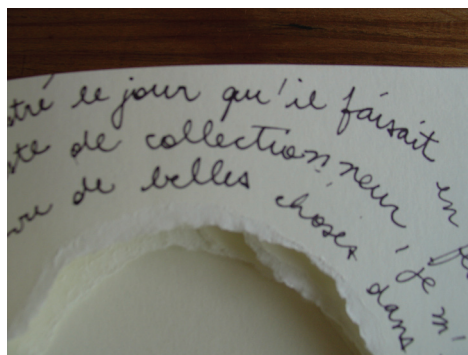 tré le jour qu'il faisait en
te de collectionneur, je m'
de belles choses dans